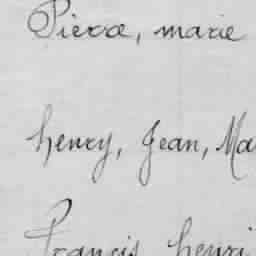 Pierre, marie
henry, Jean, Ma
Francis henri